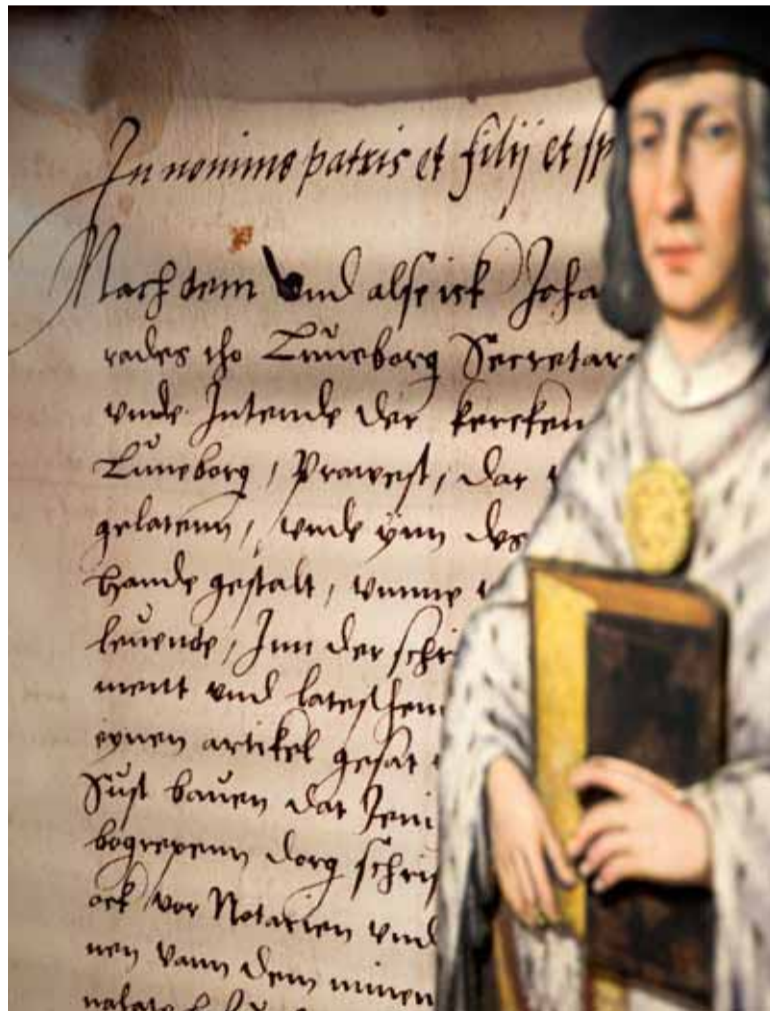 In nomine patris et filij et sp
Nach dem vnd alse ick Joha
rades tho Luneborg Secretar
vnde Intende der kercken
Luneborg / Prawest / dar
gelatenn / vnde ynn des
hande gestalt / vmme
leuende / Inn der schri
ment vnd latesten
eynen artikel gesat
Sust bauen dat Jeni
begrepenn dorg schrif
ock vor Notarien vnd
nen vann dem minen